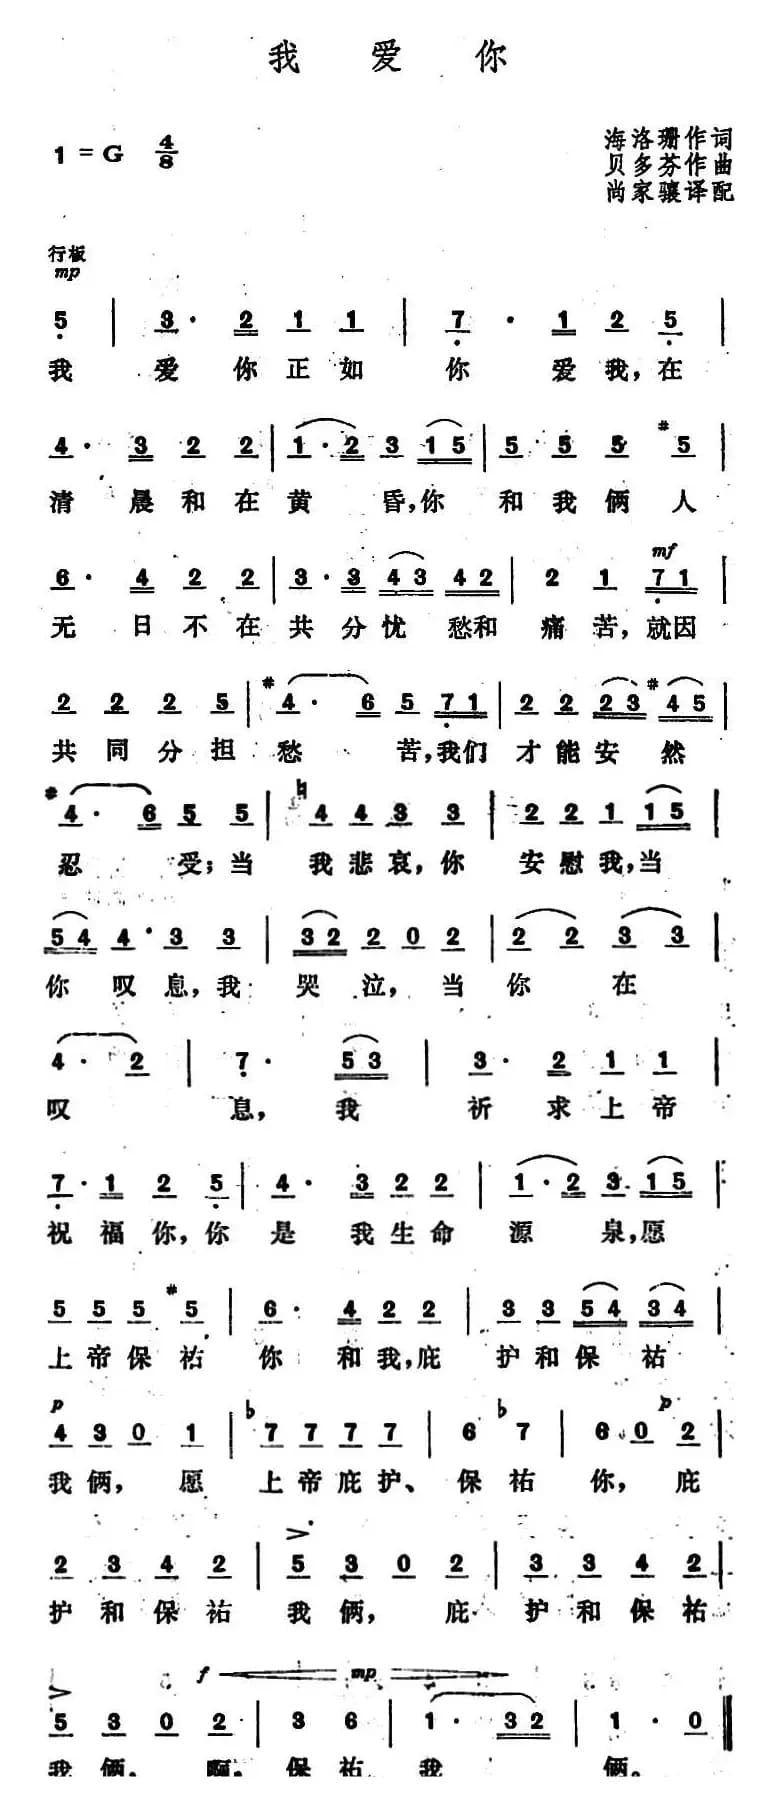 我 爱 你
1 = G 4/8
海洛珊作词
贝多芬作曲
尚家骧译配
行板
mp
5 | 3· 2 1 1 | 7· 1 2 5 |
我 爱 你 正 如 你 爱 我，在
4· 3 2 2 | 1·2 3 15 | 5 5 5 #5 |
清 晨 和 在 黄 昏，你 和 我 俩 人
mf
6· 4 2 2 | 3·3 43 42 | 2 1 71 |
无 日 不 在 共 分 忧 愁和 痛 苦，就因
2 2 2 5 | #4· 6 5 71 | 2 2 23 #45 |
共 同 分 担 愁 苦，我们 才 能 安 然
#4· 6 5 5 | ♮4 4 3 3 | 2 2 1 15 |
忍 受；当 我 悲 哀，你 安 慰 我，当
54 4· 3 3 | 32 2 0 2 | 2 2 3 3 |
你 叹 息，我 哭 泣，当 你 在
4· 2 | 7· 53 | 3· 2 1 1 |
叹 息，我 祈 求 上 帝
7· 1 2 5 | 4· 3 2 2 | 1·2 3 15
祝 福 你，你 是 我 生 命 源 泉，愿
5 5 5 #5 | 6· 4 2 2 | 3 3 54 34 |
上 帝 保 祐 你 和 我，庇 护 和 保 祐
p p
4 3 0 1 | ♭7 7 7 7 | 6 ♭7 | 6 0 2 |
我 俩，愿 上 帝 庇 护、保 祐 你，庇
>
2 3 4 2 | 5 3 0 2 | 3 3 4 2 |
护 和 保 祐 我 俩，庇 护 和 保 祐
> f mp
5 3 0 2 | 3 6 | 1· 32 | 1· 0 ‖
我 俩，啊，保 祐 我 俩。